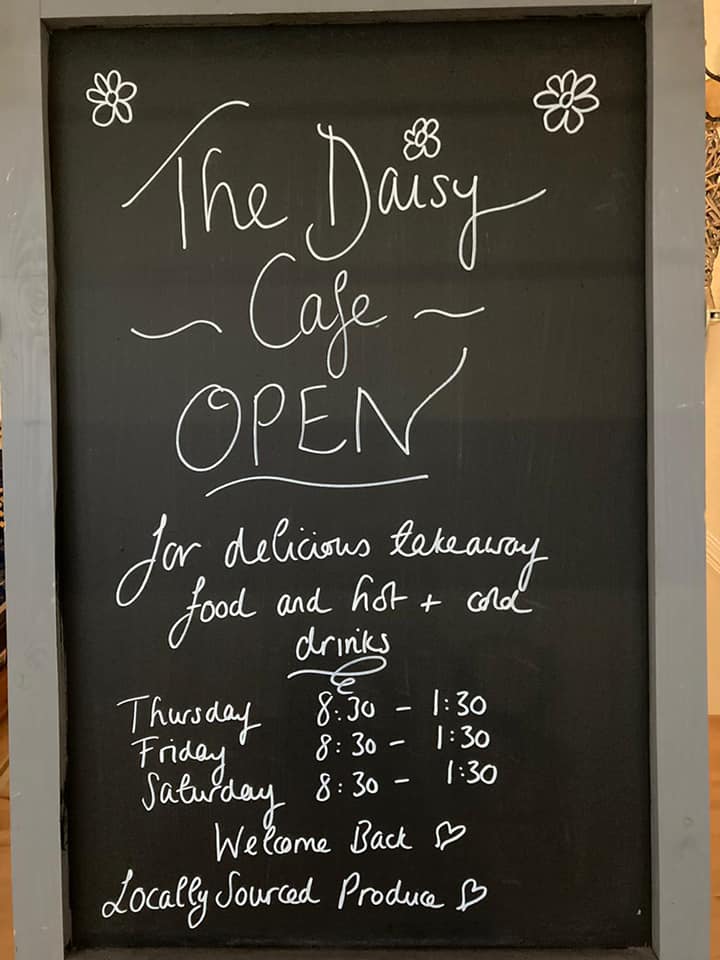 The Daisy
~ Cafe ~
OPEN
for delicious takeaway
food and hot + cold
drinks
Thursday 8:30 - 1:30
Friday 8:30 - 1:30
Saturday 8:30 - 1:30
Welcome Back ♡
Locally Sourced Produce ♡